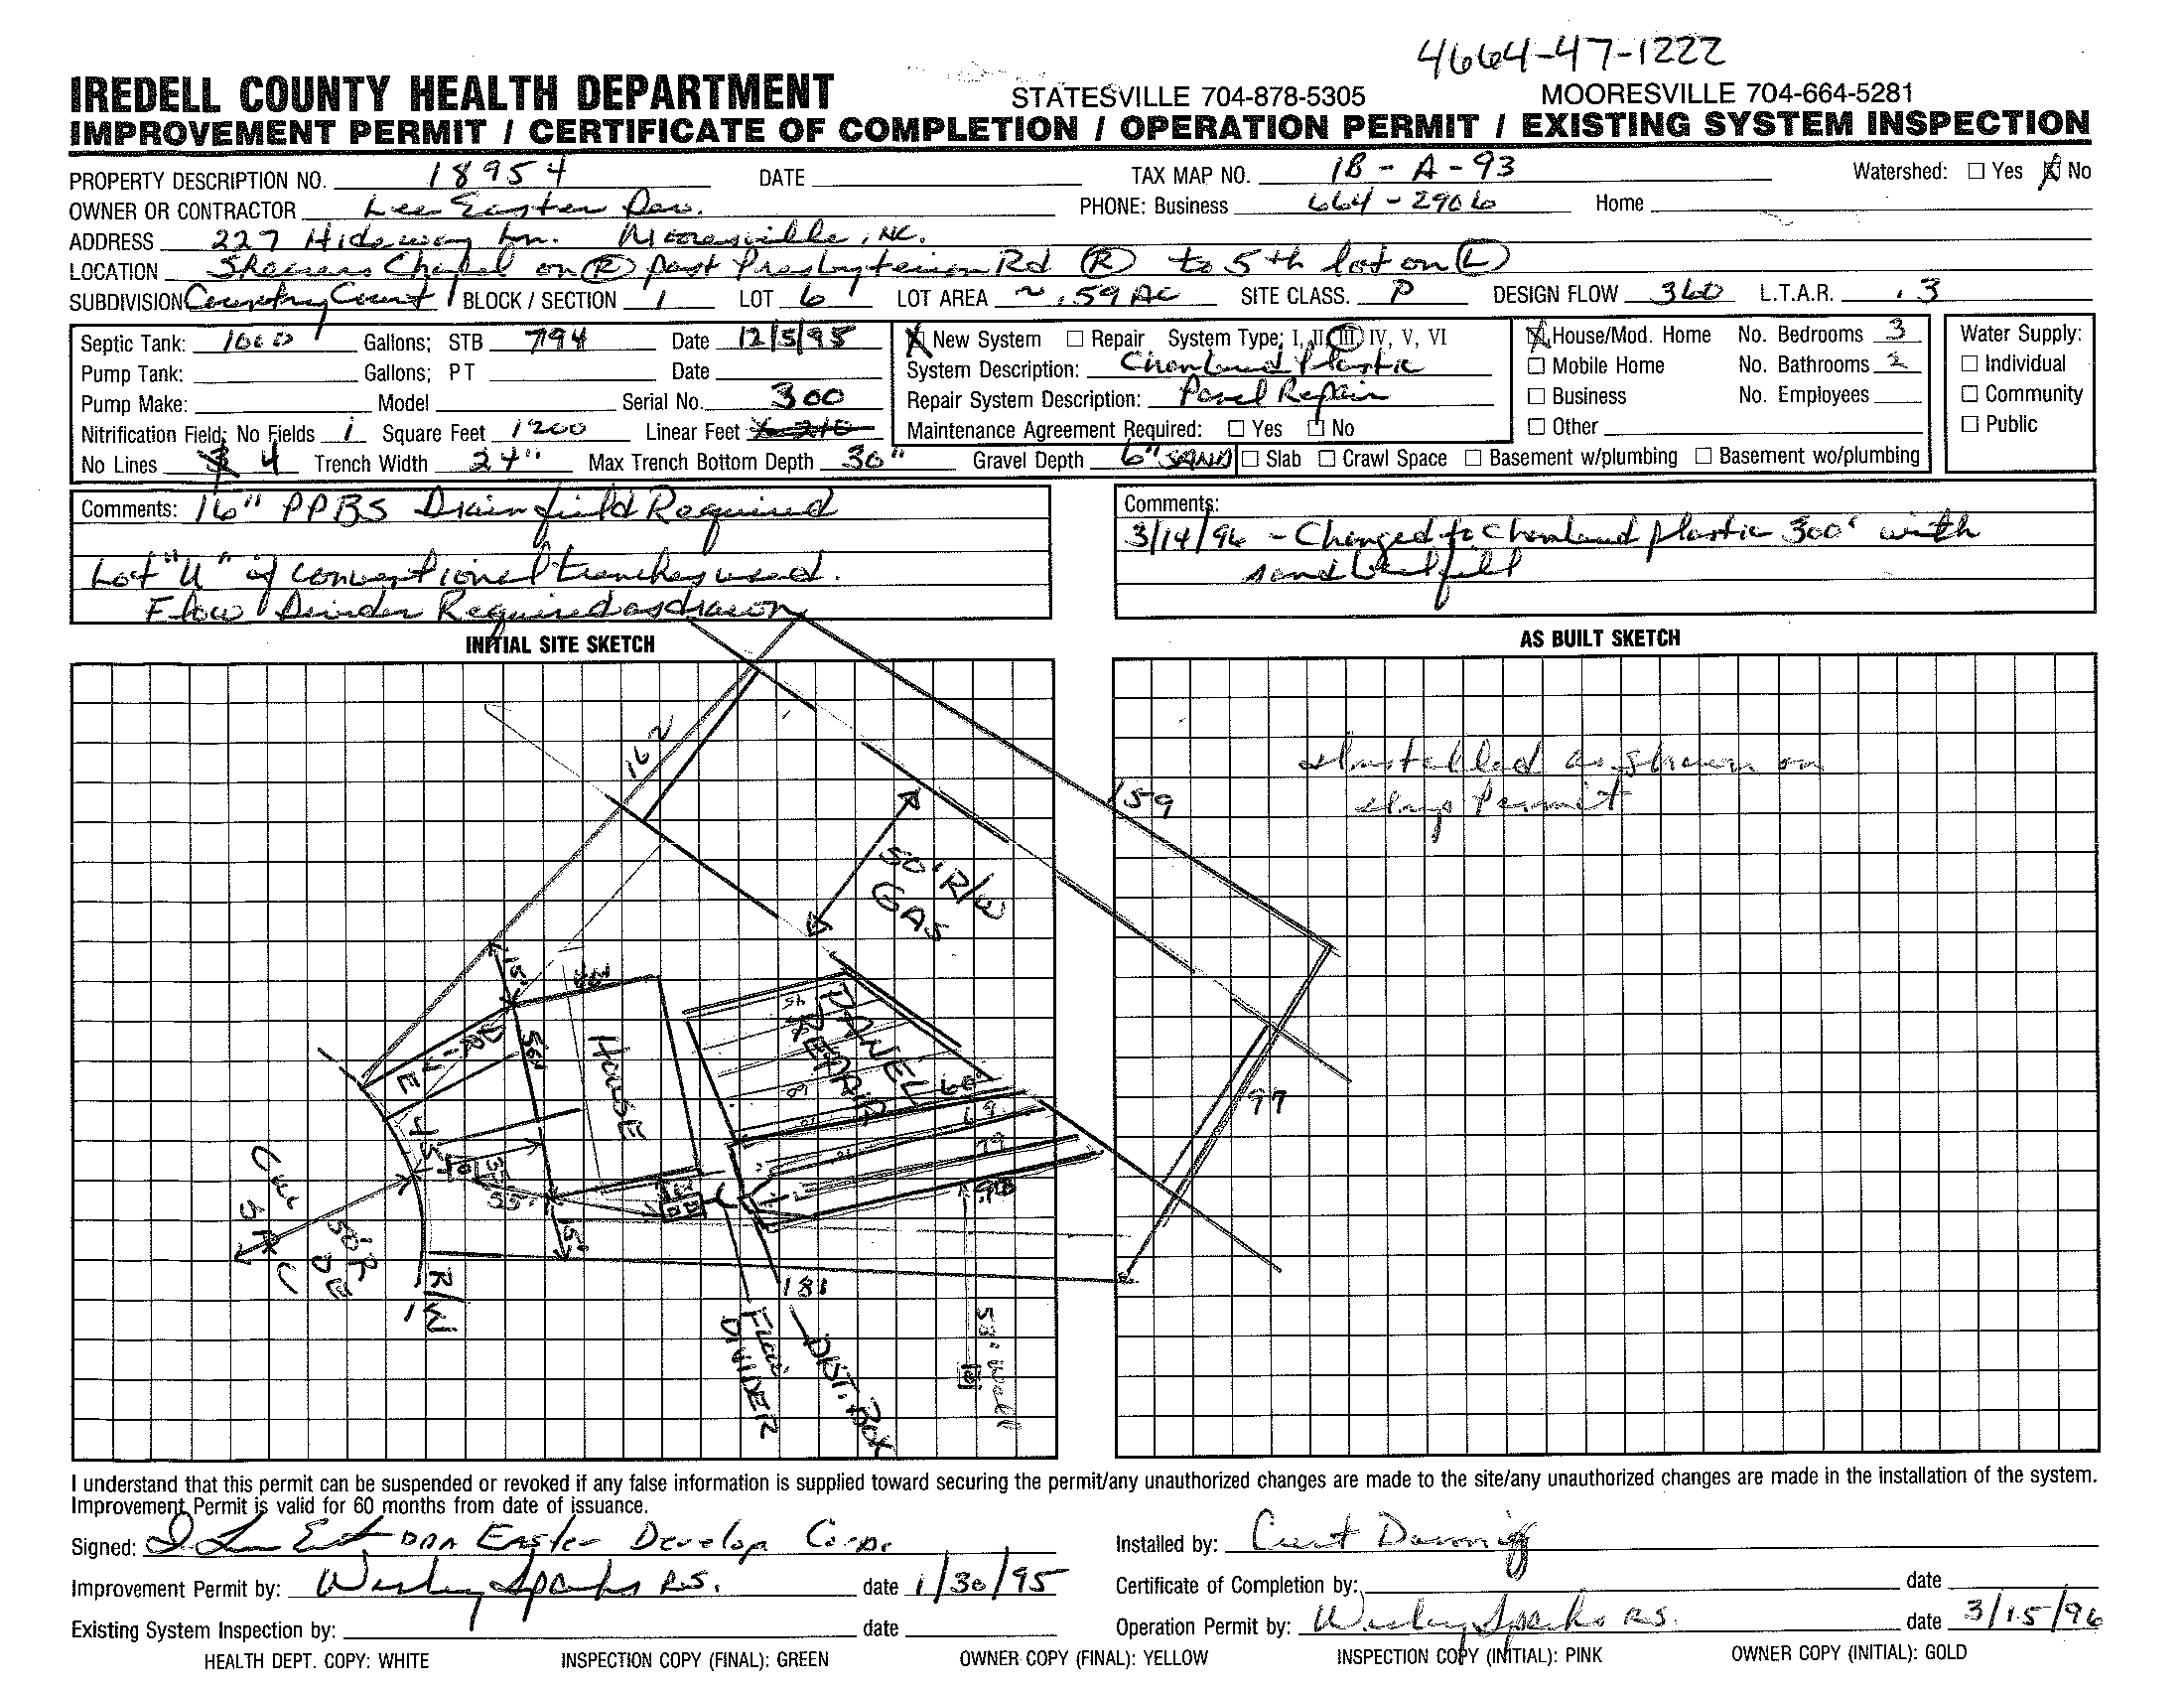 4664-47-1222
IREDELL COUNTY HEALTH DEPARTMENT STATESVILLE 704-878-5305 MOORESVILLE 704-664-5281
IMPROVEMENT PERMIT / CERTIFICATE OF COMPLETION / OPERATION PERMIT / EXISTING SYSTEM INSPECTION
PROPERTY DESCRIPTION NO. 18954 DATE TAX MAP NO. 1B-A-93 Watershed: ☐ Yes ☒ No
OWNER OR CONTRACTOR Lee Easter Dev. PHONE: Business 664-2906 Home
ADDRESS 227 Hideway Ln. Mooresville, NC.
LOCATION Shearers Chapel on (R) past Presbyterian Rd (R) to 5th lot on (L)
SUBDIVISION Country Court BLOCK / SECTION 1 LOT 6 LOT AREA ~ .59 AC SITE CLASS. P DESIGN FLOW 360 L.T.A.R. .3
Septic Tank: 1000 Gallons; STB 794 Date 12/5/95
Pump Tank: Gallons; PT Date
Pump Make: Model Serial No. 300
Nitrification Field: No Fields 1 Square Feet 1200 Linear Feet
No Lines 3 4 Trench Width 24" Max Trench Bottom Depth 30" Gravel Depth 6" SAND
☒ New System ☐ Repair System Type; I, II, III, IV, V, VI
System Description: Chemland Plastic
Repair System Description: Panel Repair
Maintenance Agreement Required: ☐ Yes ☐ No
☒ House/Mod. Home No. Bedrooms 3
☐ Mobile Home No. Bathrooms 2
☐ Business No. Employees
☐ Other
☐ Slab ☐ Crawl Space ☐ Basement w/plumbing ☐ Basement wo/plumbing
Water Supply:
☐ Individual
☐ Community
☐ Public
Comments: 16" PPBS Drainfield Required
Lot "U" if conventional trenches used.
Flow Divider Required as drawn
Comments:
3/14/96 - Changed to Chemland plastic 300' with
sand backfill
INITIAL SITE SKETCH
AS BUILT SKETCH
162
159
Installed as shown on
Permit
50' R/W
GAS
15'
40
DRIVE
56'
HOUSE
45
PANEL
REPAIR
60
69
79
90
97
45'
35
55'
15'
CUL
SAC
50'R
DE
R/W
181
FLOW
DIVIDER
DIST. BOX
53' Well
I understand that this permit can be suspended or revoked if any false information is supplied toward securing the permit/any unauthorized changes are made to the site/any unauthorized changes are made in the installation of the system.
Improvement Permit is valid for 60 months from date of issuance.
Signed: Easter Develop Corp.
Installed by: Curt
Improvement Permit by: Wesley Sparks R.S. date 1/30/95
Certificate of Completion by: date
Existing System Inspection by: date
Operation Permit by: Wesley Sparks R.S. date 3/15/96
HEALTH DEPT. COPY: WHITE INSPECTION COPY (FINAL): GREEN OWNER COPY (FINAL): YELLOW INSPECTION COPY (INITIAL): PINK OWNER COPY (INITIAL): GOLD